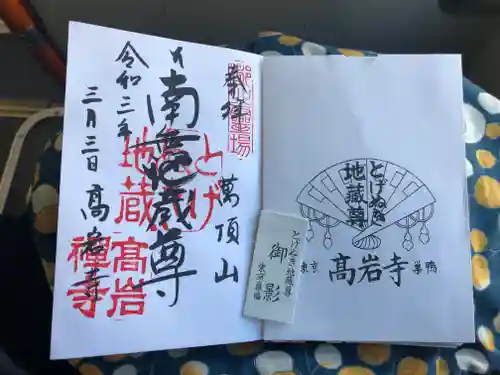 奉拝
萬頂山
南無地蔵尊
令和三年
三月三日
高岩寺
とげ
地蔵
高岩
禅寺
霊場
とげぬき
地蔵尊
東京
高岩寺
巣鴨
とげぬき地蔵尊
御影
東京巣鴨